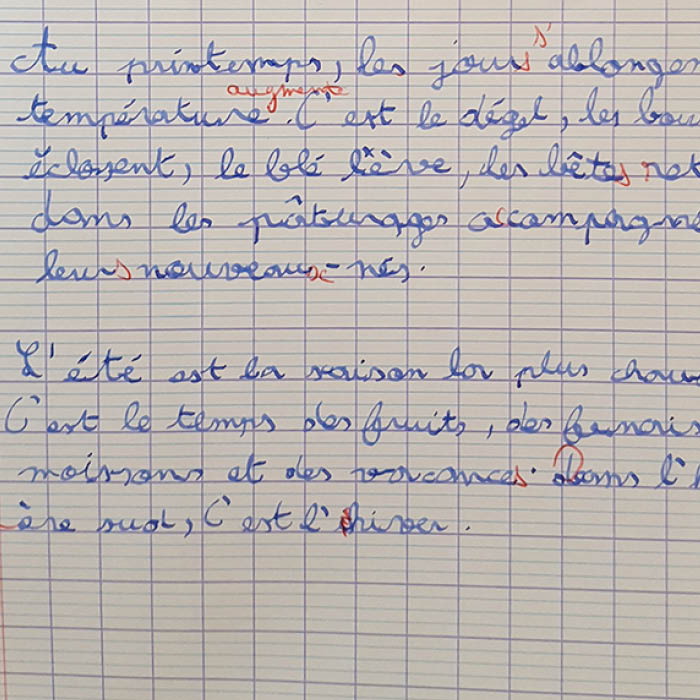 Au printemps, les jours s'allongen
augmente
température. C'est le dégel, les bou
éclosent, le blé lève, les bêtes ret
dans les pâturages accompagne
leurs nouveaux-nés.
L'été est la saison la plus chau
C'est le temps des fruits, des fenais
moissons et des vacances. dans l'h
ère sud, C'est l'hiver.